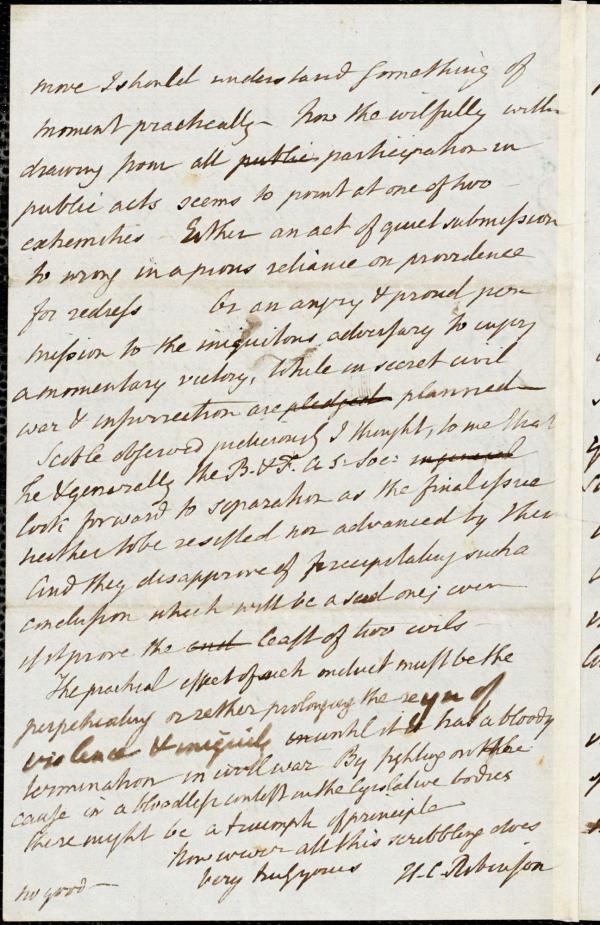 more I should understand something of
moment practically – Now the wilfully with
drawing from all public participation in
public acts seems to point at one of two
extremities – Either an act of quiet submission
to wrong in a pious reliance on providence
for redress Or an angry & proud per
mission to the iniquitous adversary to enjoy
a momentary victory, While in secret civil
war & insurrection are pledged planned
Scoble observed judiciously I thought, to me that
he & generally the B. & F. A S: Soc: in general
look forward to separation as the final issue
neither to be resisted nor advanced by them
And they disapprove of precipitating such a
conclusion which will be a sad one; even
if it prove the and least of two evils –
The practical effect of such conduct must be the
perpetuating or rether prolonging the reign of
violence & iniquity until it has a bloody
termination in civil war By fighting on the
cause in a bloodless contest in the legislative bodies
there might be a triumph of principle
However all this scribbling does
no good – Very truly yours H. C. Robinson